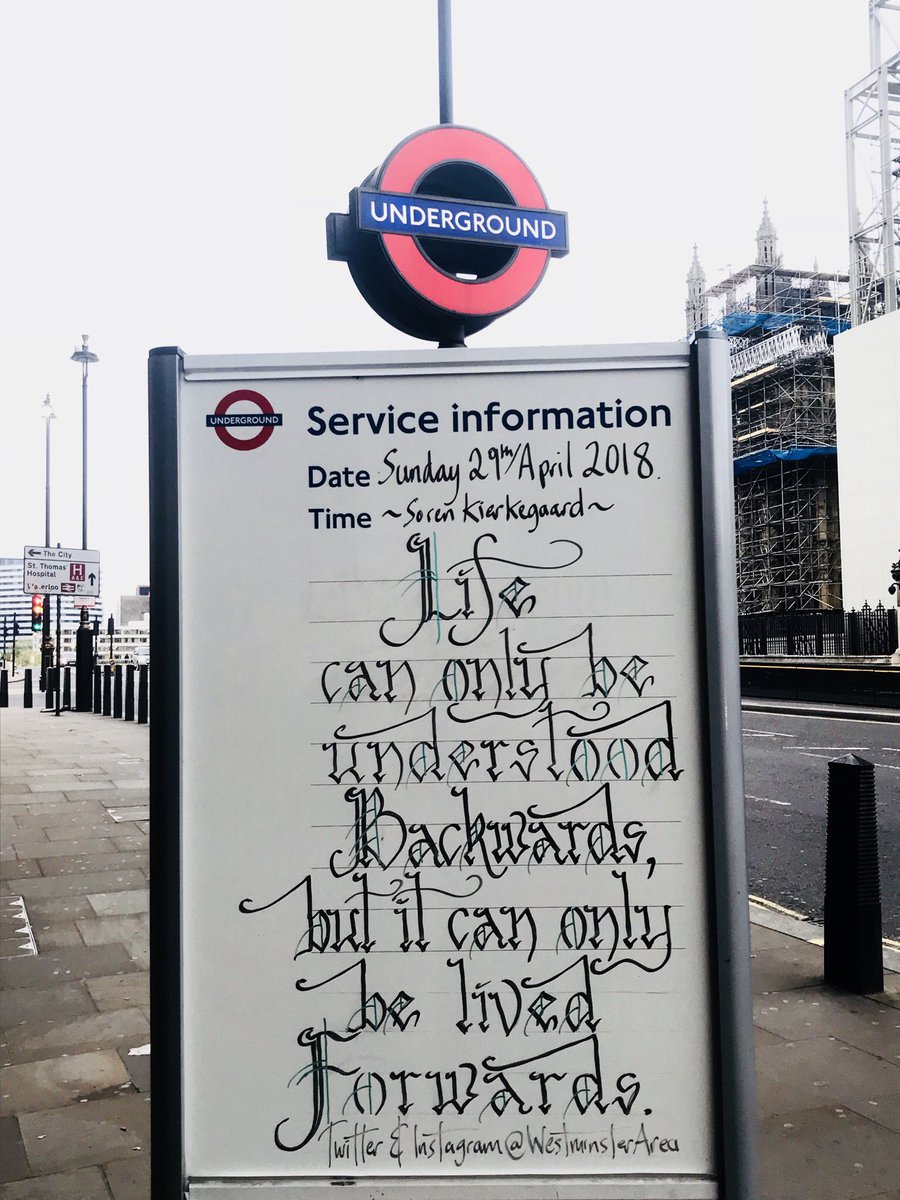 UNDERGROUND
UNDERGROUND
Service information
Date Sunday 29th/April 2018.
Time ~Soren Kierkegaard~
Life
can only be
understood
Backwards,
but it can only
be lived
Forwards.
Twitter & Instagram@WestminsterArea
← The City
St. Thomas'
Hospital
H
A&E
Waterloo